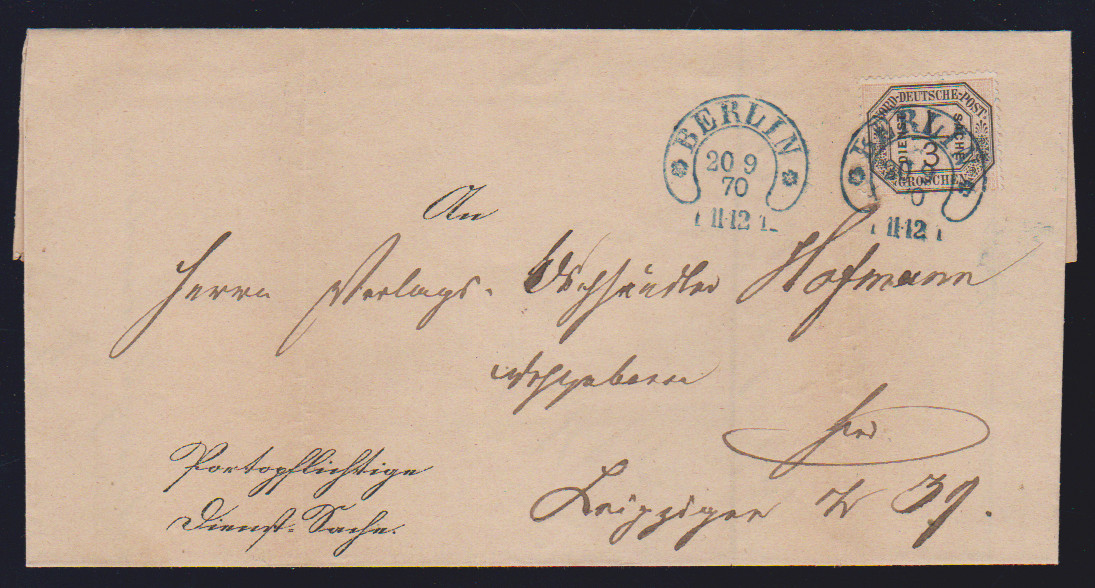 BERLIN
20 9
70
11-12
NORD-DEUTSCHE-POST
DIENST SACHE
3
GROSCHEN
BERLIN
20 9
0
11-12
An
Herrn Verlags-Buchhändler Hofmann
Wohlgeboren
hier
Leipziger Str 39.
Portopflichtige
Dienst-Sache.